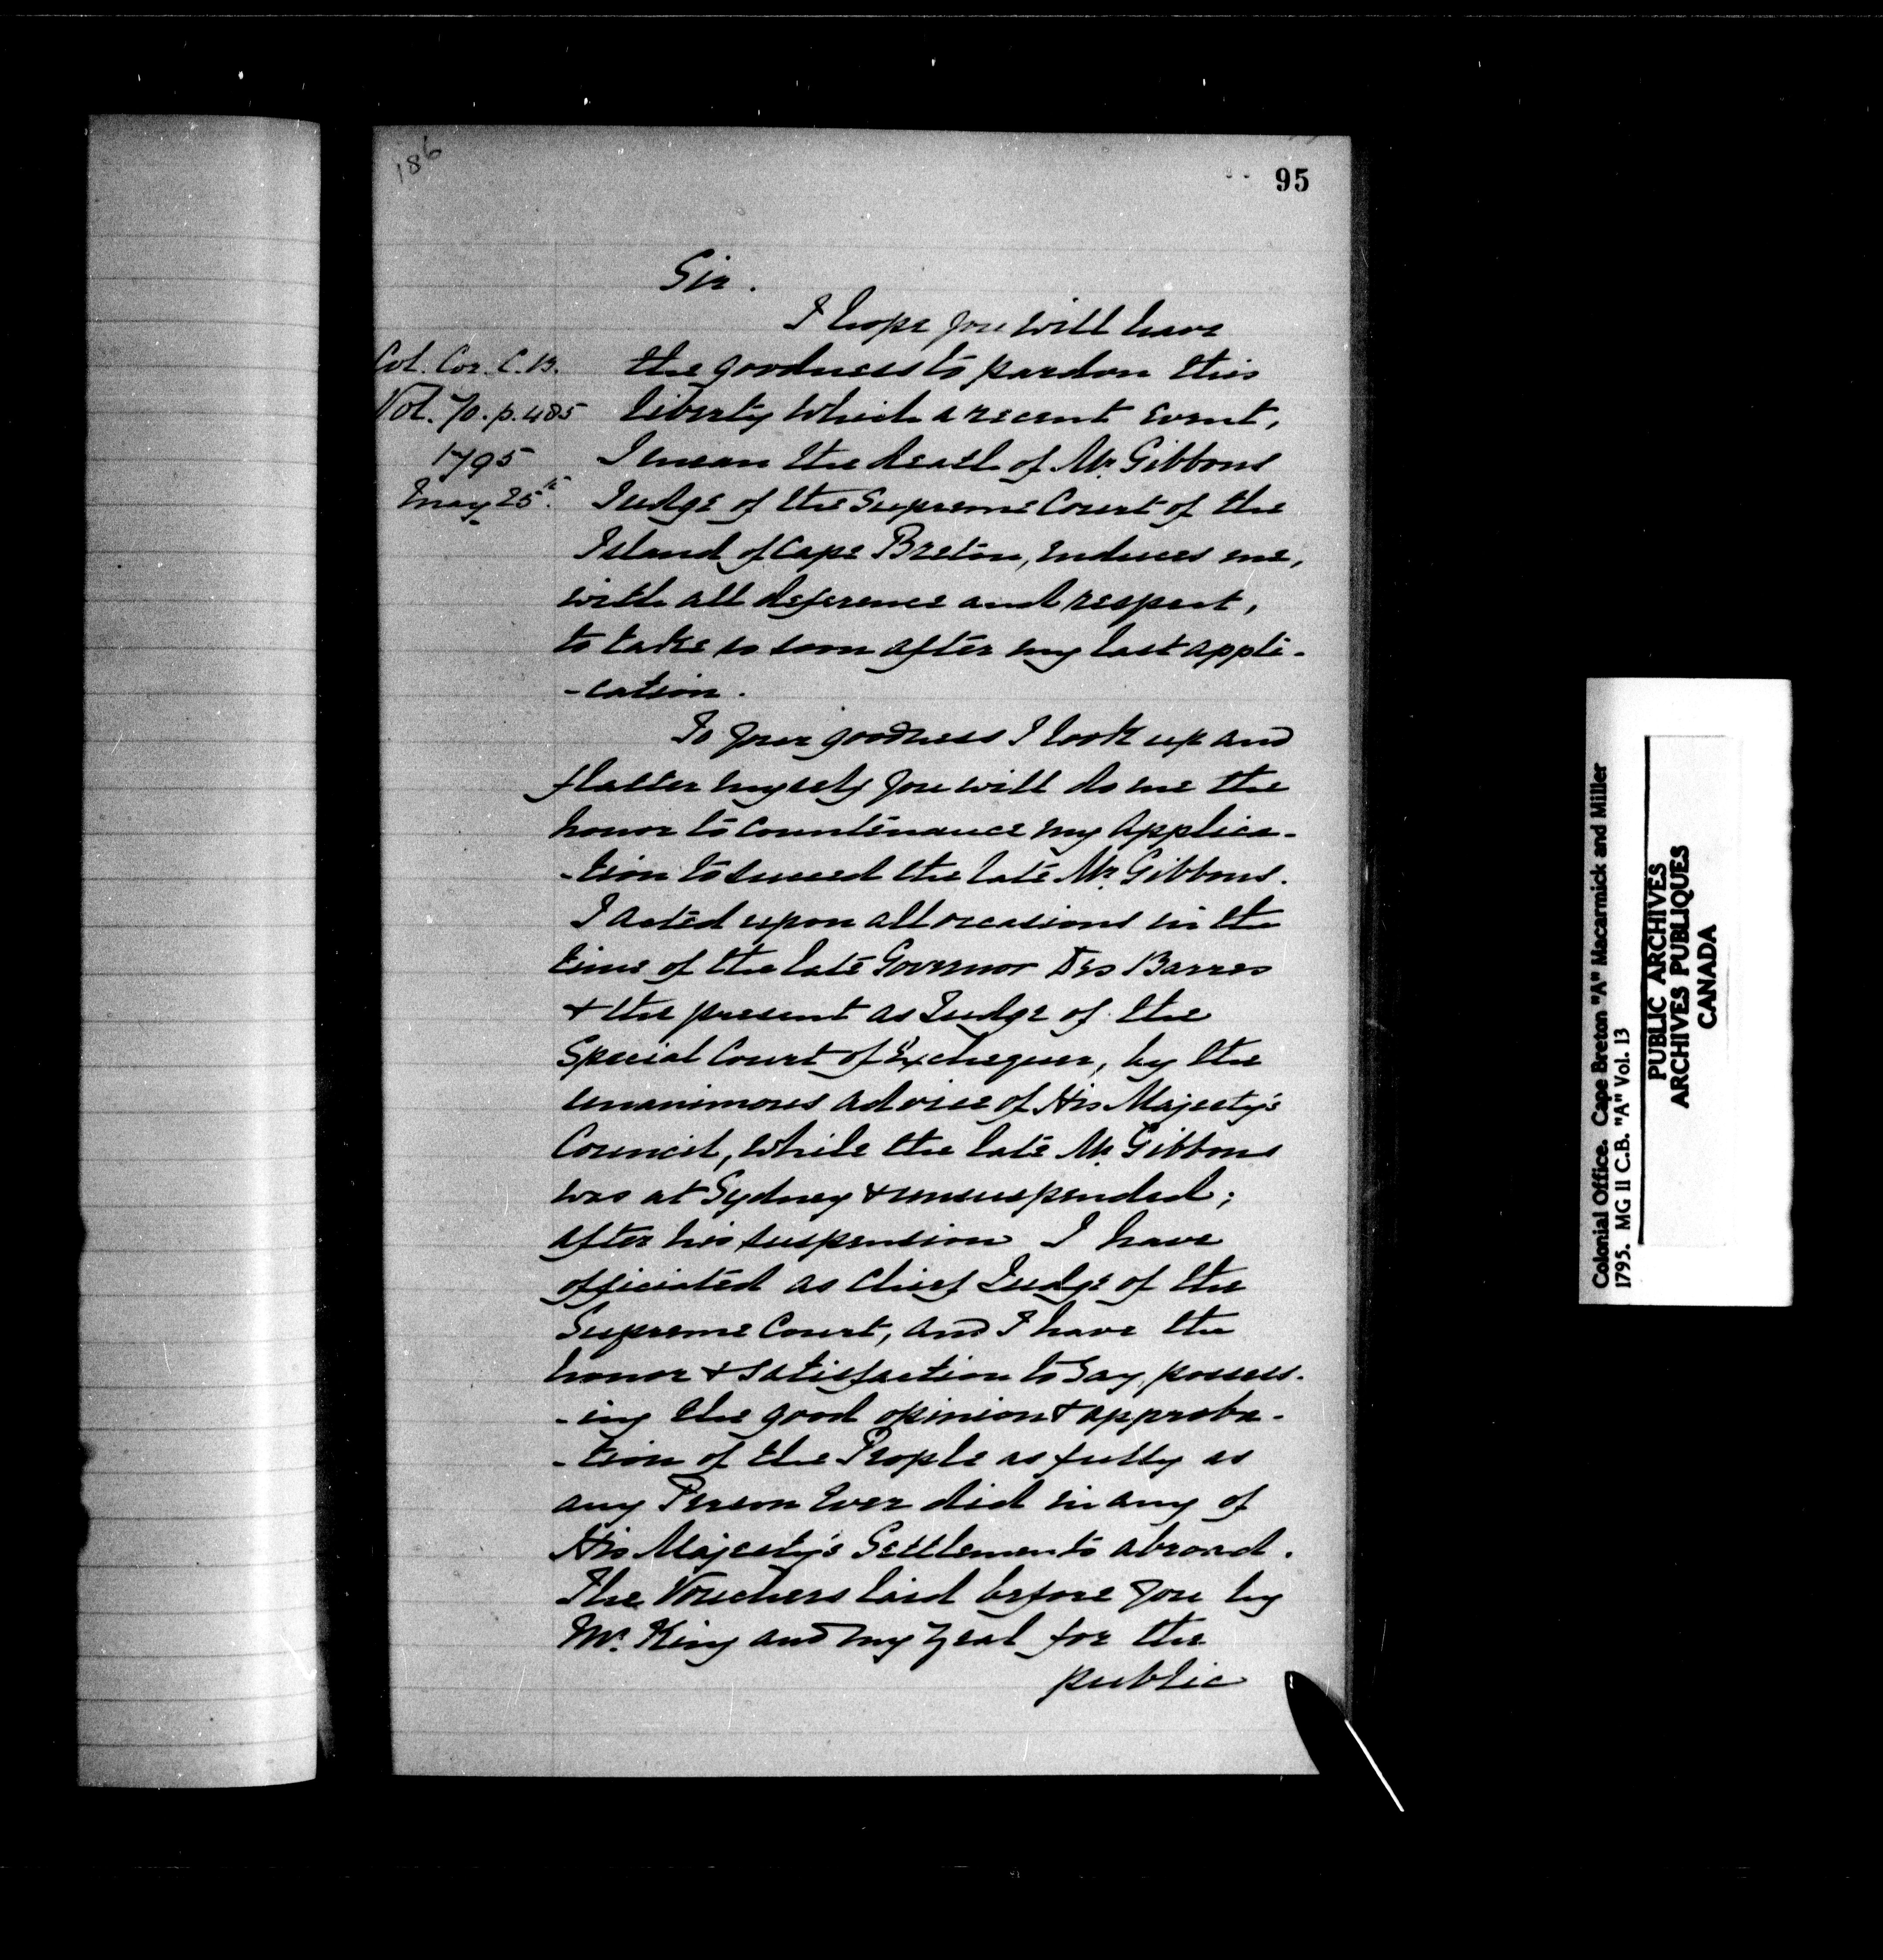 186
95
Sir.
I hope you will have
Col. Cor. C.B.
the goodness to pardon this
Vol. 70. p. 485
liberty which a recent event,
1795
I mean the death of Mr. Gibbons
May 25th.
Judge of the Supreme Court of the
Island of Cape Breton, enduces me,
with all deference and respect,
to take so soon after my last appli-
-cation.
To your goodness I look up and
flatter myself you will do me the
honor to countenance my applica-
-tion to succeed the late Mr. Gibbons.
I acted upon all occasions in the
time of the late Governor Des Barres
& the present as Judge of the
Special Court of Exchequer, by the
unanimous advice of His Majesty's
Council, while the late Mr. Gibbons
was at Sydney & unsuspended;
after his suspension I have
officiated as Chief Judge of the
Supreme Court, and I have the
honor & satisfaction to say, possess-
-ing the good opinion & approba-
-tion of the People as fully as
any Person ever did in any of
His Majesty's Settlements abroad.
The Vouchers laid before you by
Mr. King and my zeal for the
public
Colonial Office. Cape Breton "A" Macarmick and Miller
1795. MG 11 C.B. "A" Vol. 13
PUBLIC ARCHIVES
ARCHIVES PUBLIQUES
CANADA